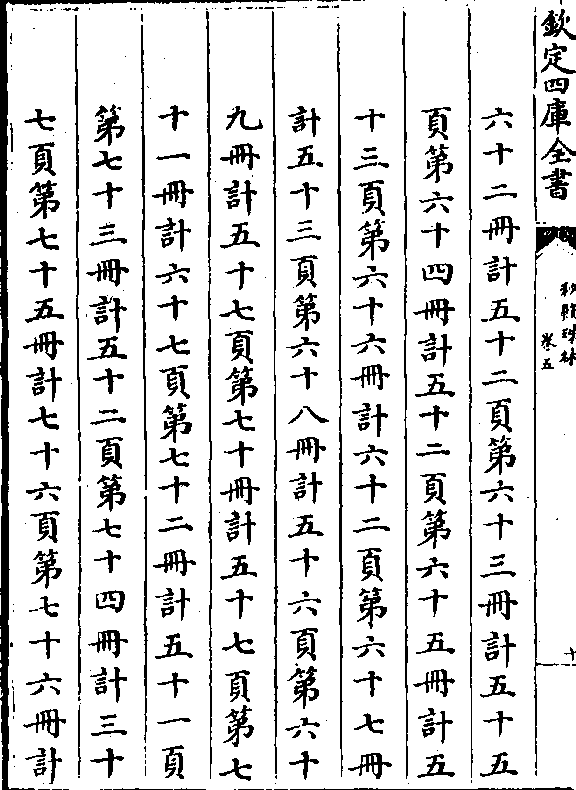 欽定四庫全書
秘殿珠林
卷五
十
六十二冊計五十二頁第六十三冊計五十五
頁第六十四冊計五十二頁第六十五冊計五
十三頁第六十六冊計六十二頁第六十七冊
計五十三頁第六十八冊計五十六頁第六十
九冊計五十七頁第七十冊計五十七頁第七
十一冊計六十七頁第七十二冊計五十一頁
第七十三冊計五十二頁第七十四冊計三十
七頁第七十五冊計七十六頁第七十六冊計